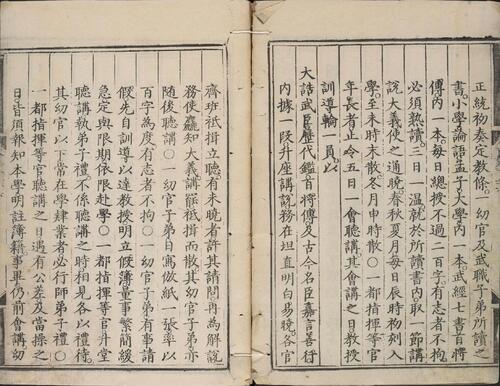 正統初奏定教條○一幼官及武職子弟所讀之
書小學論語孟子大學内一本武經七書百將
傳内一本每日總授不過二百字有志者不拘
必須熟讀三日一温就於所讀書内取一節講
說大義使之通曉春秋夏月每日辰時初刻入
學至未時末散冬月申時散○一都指揮等官
年長者止令五日一會聽講其會講之日教授
訓導輪一員以
大誥武臣歷代鑑百將傳及古今名臣嘉言善行
内㨿一段升座講說務在坦直明白昜曉各官
齊班袛揖立聽有未曉者許其請問再為解說
務使麤知大義講罷袛揖而散其幼官子弟亦
随後聽講○一幼官子弟日寫倣紙一張率以
百字為度有志者不拘○一幼官子弟有事請
假先自訓導以達教授明立假簿量事繁簡緩
急定與限期依限赴學○一都指揮等官升堂
聽講執弟子禮不係聽講之時相見各以禮待
其幼官以下常在學肄業者必行師弟子禮○
一都指揮等官聽講之日遇有公差及當操之
日皆須報知本學明註簿籍事畢仍前會講幼